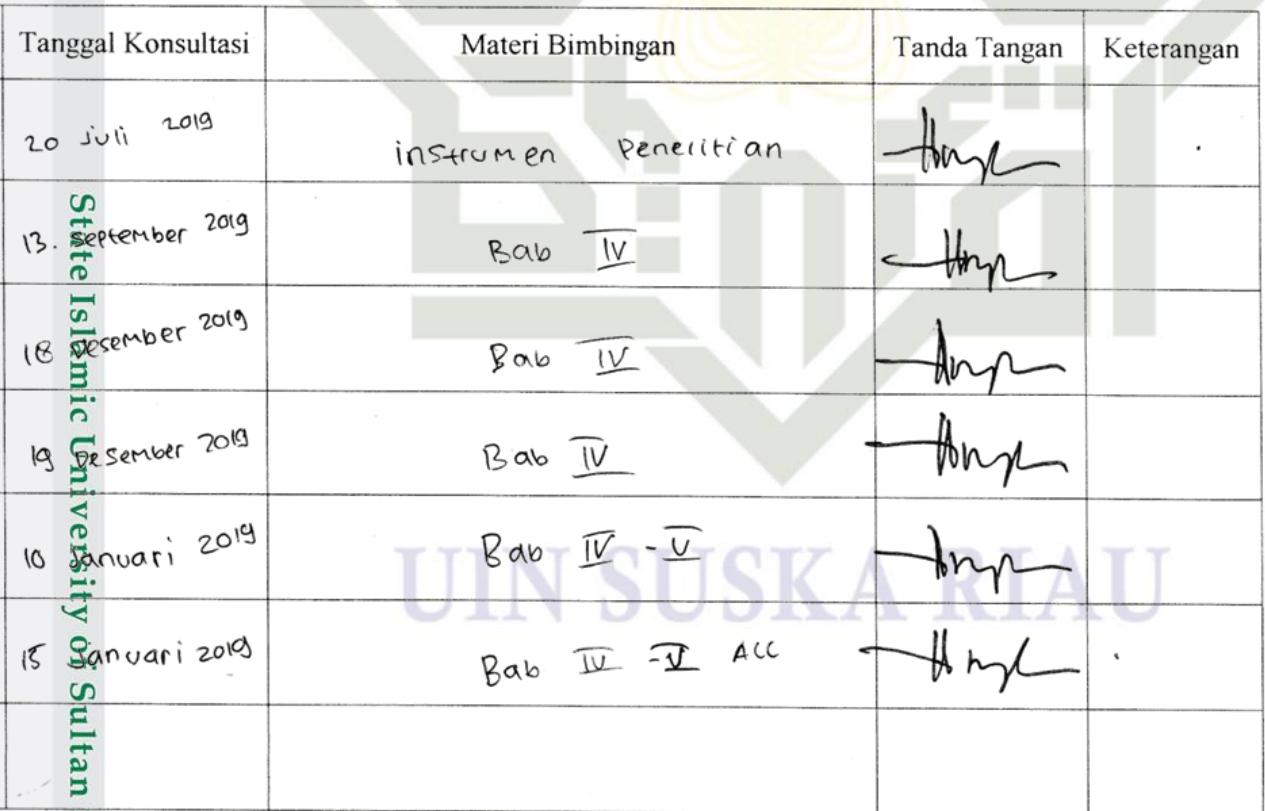 Tanggal Konsultasi Materi Bimbingan Tanda Tangan Keterangan
20 Juli 2019 instrumen Penelitian
13. September 2019 Bab IV
18 Desember 2019 Bab IV
19 Desember 2019 Bab IV
10 Januari 2019 Bab IV - V
15 Januari 2019 Bab IV - V ACC
State Islamic University of Sultan
UIN SUSKA RIAU